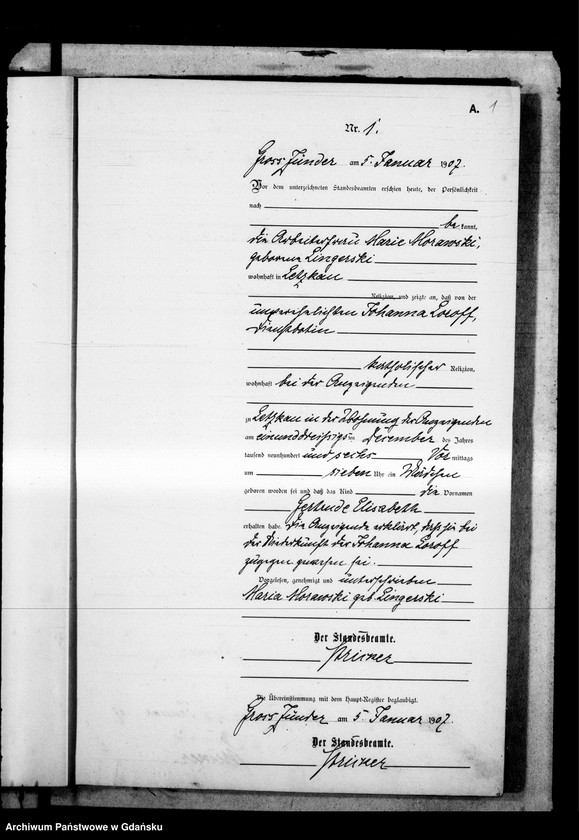 A. 1
Nr. 1.
Gross Zünder am 5. Januar 1907.
Vor dem unterzeichneten Standesbeamten erschien heute, der Persönlichkeit
nach
be kannt,
die Arbeiterfrau Marie Morawski,
geborene Lingerski
wohnhaft in Letzkau
Religion, und zeigte an, daß von der
unverehelichten Johanna Loroff,
Dienstbotin
katholischer Religion,
wohnhaft bei der Anzeigenden
zu Letzkau in der Wohnung der Anzeigenden
am einunddreißigsten Dezember des Jahres
tausend neunhundert und sechs Vor mittags
um sieben Uhr ein Mädchen
geboren worden sei und daß das Kind die Vornamen
Gertrude Elisabeth
erhalten habe. Die Anzeigende erklärt, daß sie bei
der Niederkunft der Johanna Loroff
zugegen gewesen sei.
Vorgelesen, genehmigt und unterschrieben
Maria Morawski geb. Lingerski
Der Standesbeamte.
Die Übereinstimmung mit dem Haupt-Register beglaubigt.
Gross Zünder am 5. Januar 1907.
Der Standesbeamte.
Archiwum Państwowe w Gdańsku